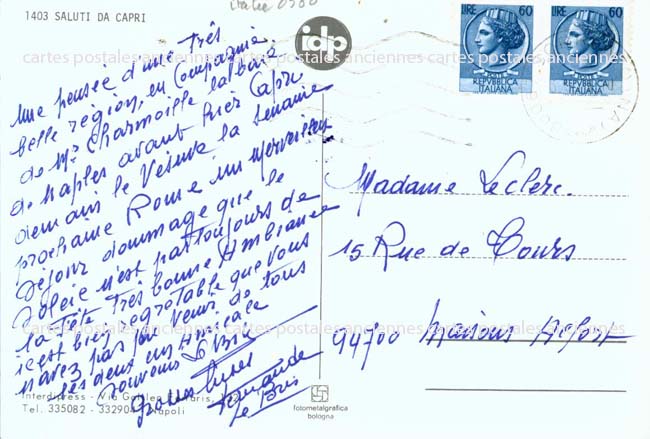 1403 SALUTI DA CAPRI
Italie
idp
LIRE 60
REPVBBLICA
ITALIANA
LIRE 60
REPVBBLICA
ITALIANA
cartes postales anciennes cartes postales anciennes cartes postales anciennes
Une pensée d'une Très
belle région, en Compagnie
de Mr Charmoille la baie
de Naples avant hier Capri
demain le Vésuve la semaine
prochaine Rome un merveilleux
séjour dommage que le
Soleil n'est pas toujours de
la fête Très bonne Ambiance
c'est bien regrettable que vous
n'avez pas pu venir de tous
les deux un Amicale
Souvenir
Grosses bises
Fernande
le Bris
Madame Leclerc.
15 Rue de Cours
94700 Maisons Alfort
cartes postales anciennes cartes postales anciennes cartes postales anciennes
Interdipress - Via Galileo
Tel. 335082 - 332909 Napoli
fotometalgrafica
bologna